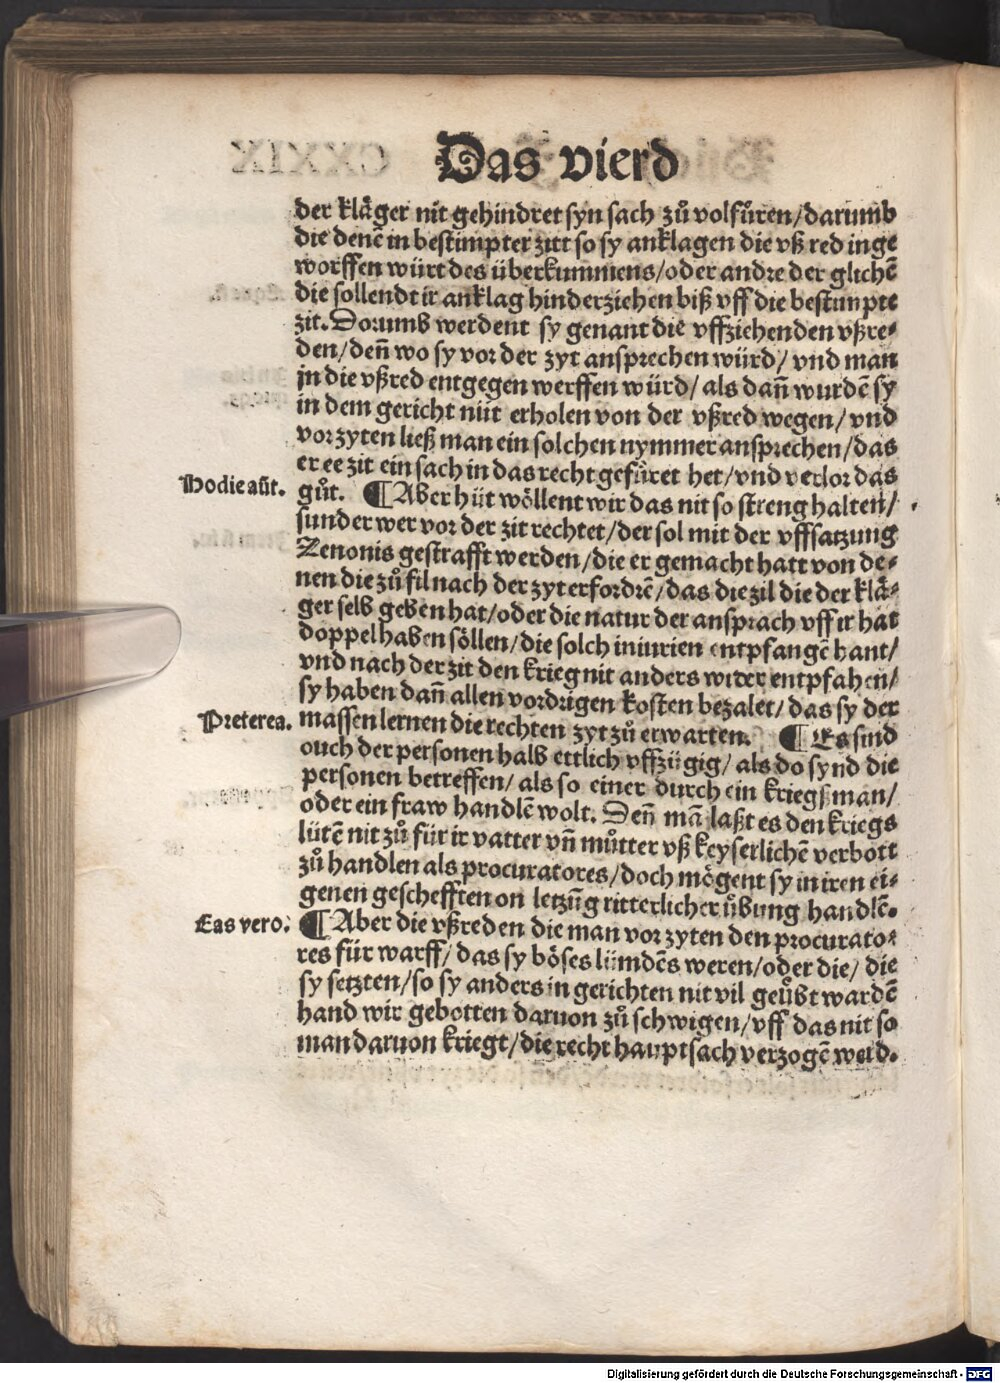 Das vierd
der kläger nit gehindret syn sach zů volfůren/darumb
die denē in bestimpter zitt so sy anklagen die vß red inge
worffen würt des überkummens/oder andre der glichē
die sollendt ir anklag hinderziehen biß vff die bestimpte
zit. Dorumb werdent sy genant die vffziehenden vßre-
den/deñ wo sy vor der zyt ansprechen würd/ vnd man
jn die vßred entgegen werffen würd/ als dañ wurdē sy
in dem gericht nüt erholen von der vßred wegen/ vnd
vor zyten ließ man ein solchen nymmer ansprechen/das
er ee zit ein sach in das recht gefůret het/vnd verlor das
Hodie aūt.
gůt. ¶ Aber hüt wöllent wir das nit so streng halten/
sunder wer vor der zit rechtet/der sol mit der vffsatzung
Zenonis gestrafft werden/die er gemacht hatt von de-
nen die zů fil nach der zyt erfordrē/das die zil die der klä-
ger selb geben hat/oder die natur der ansprach vff ir hat
doppel haben söllen/die solch iniurien entpfangē hant/
vnd nach der zit den krieg nit anders wider entpfahen/
sy haben dañ allen vordrigen kosten bezalet/das sy der
Preterea.
massen lernen die rechten zyt zů erwarten. ¶ Es sind
ouch der personen halb ettlich vffzügig/ als do synd die
personen betreffen/ als so einer durch ein kriegßman/
oder ein fraw handlē wolt. Deñ mā laßt es den kriegs
lütē nit zů für ir vatter vñ můtter vß keyserlichē verbott
zů handlen als procuratores/doch mögent sy in iren ei-
genen geschefften on letzūg ritterlicher ůbung handlē.
Eas vero.
¶ Aber die vßreden die man vor zyten den procurato-
res für warff/das sy böses lümdēs weren/oder die/ die
sy setzten/so sy anders in gerichten nit vil geůbt wardē
hand wir gebotten daruon zů schwigen/vff das nit so
man daruon kriegt/die recht hauptsach verzogē werd.
Digitalisierung gefördert durch die Deutsche Forschungsgemeinschaft - DFG